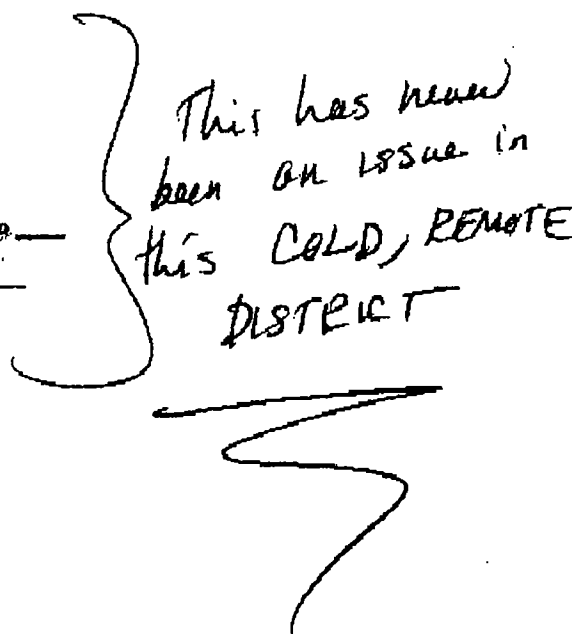 This has never
been an issue in
this COLD, REMOTE
DISTRICT